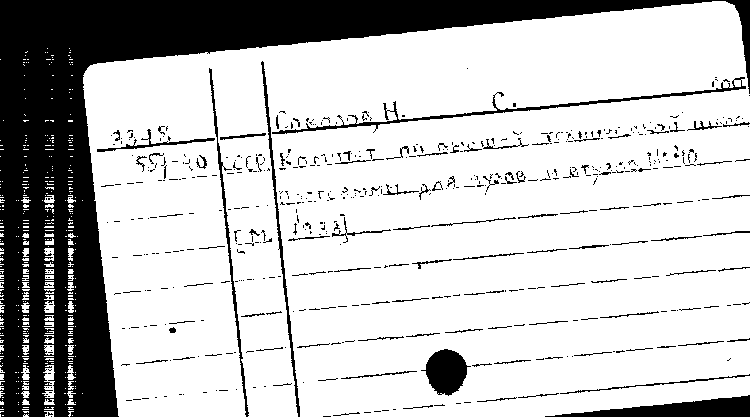 Соколов, Н. С. сост
3348
557-40 СССР. Комитет по высшей технической школе
Программы для вузов и втузов. № 40.
[М. 1933].